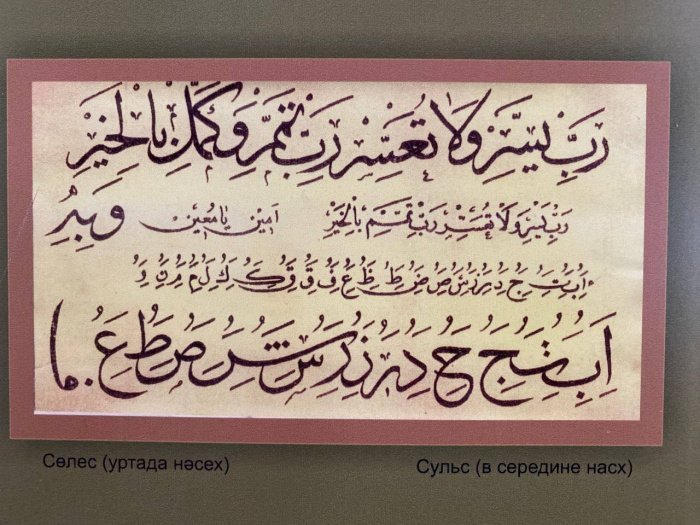 رَبِّ يَسِّرْ وَلَا تُعَسِّرْ رَبِّ تَمِّمْ وَكَمِّلْ بِالْخَيْرِ
رَبِّ يَسِّرْ وَلَا تُعَسِّرْ رَبِّ تَمِّمْ بِالْخَيْرِ آمِينْ يَا مُعِينْ وَبِهِ
ا ب ت ث ج د ر ز س ص ض ط ظ ع ف ق ك ل م
ا ب ت ج ح د ر ز س ش ص ط ع
Сөлес (уртада нәсех)
Сульс (в середине насх)